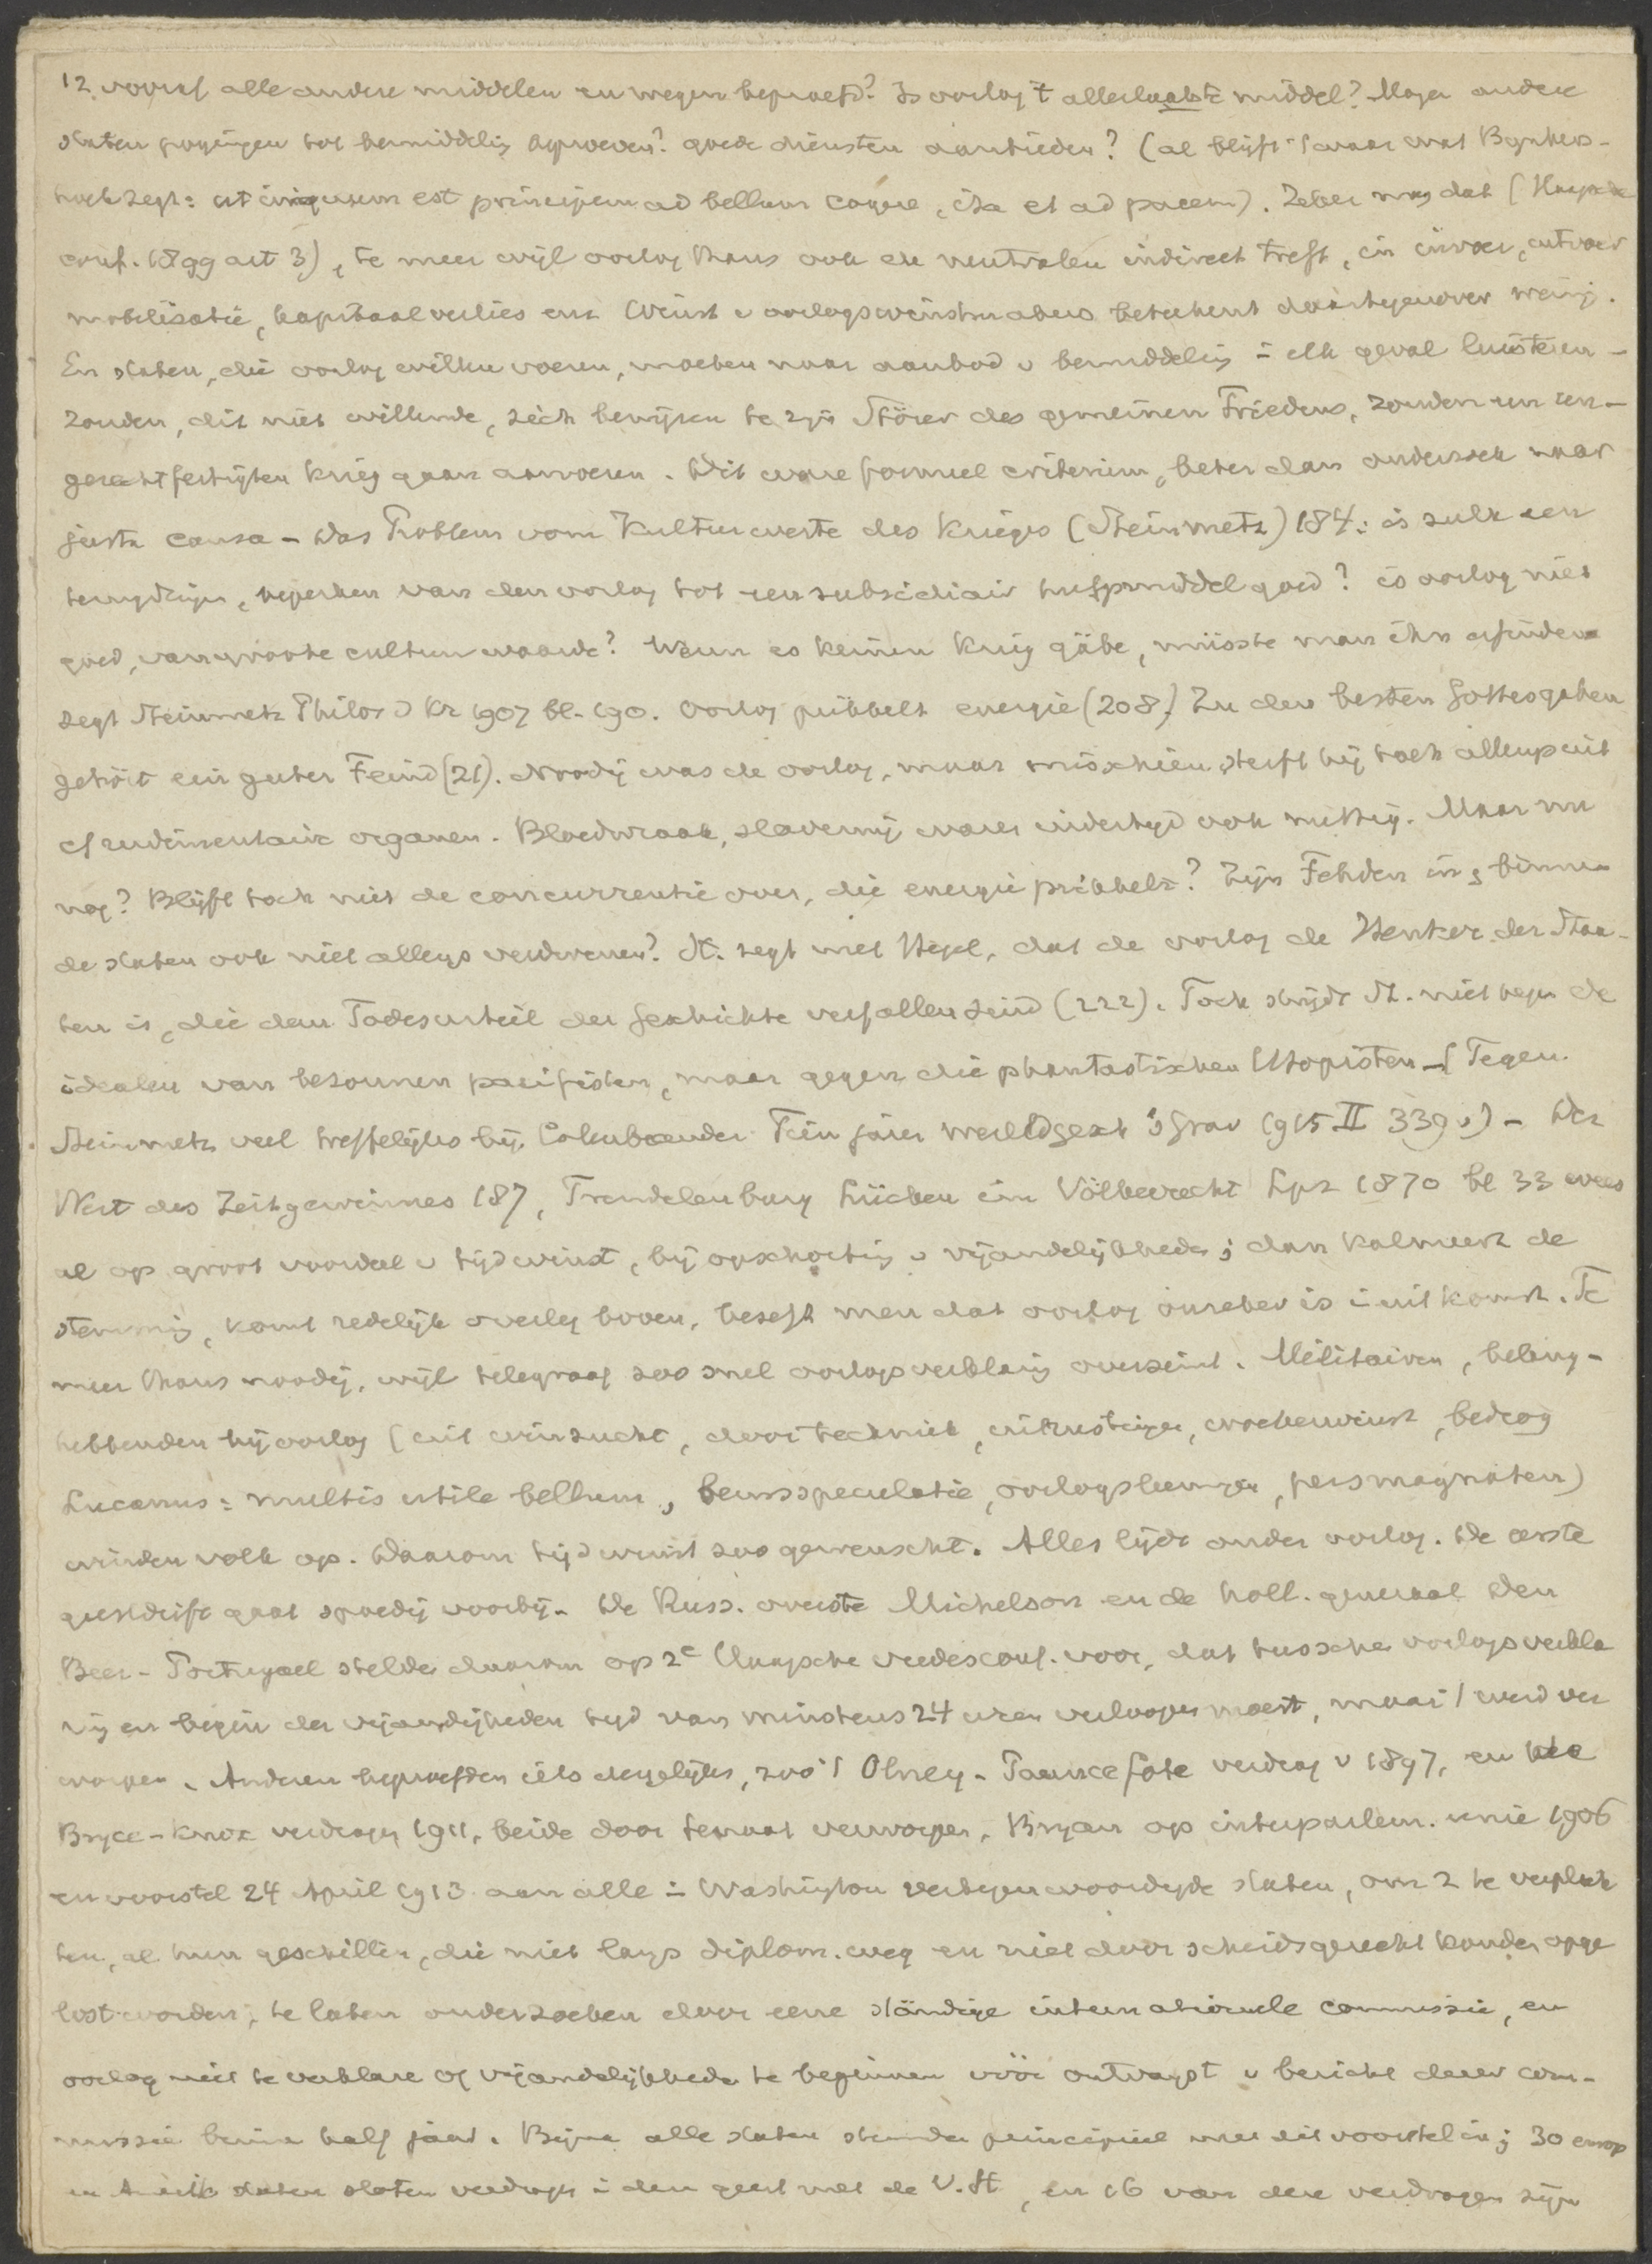 12. vooraf alle andere middelen en wegen beproefd? Is oorlog 't allerlaatste middel? Mogen andere
staten pogingen tot bemiddelig beproeven? goede diensten aanbieden? (al blijft 't waar wat Bynkers-
hoek zegt: ut iniquum est principem ad bellum cogere, ita et ad pacem). Zeker mag dat (Haagsche
conf. 1899 art 3), te meer wijl oorlog thans ook de neutralen indirect treft, in invoer, uitvoer
mobilisatie, kapitaalverlies enz. Winst v oorlogswinstmakers beteekent daartegenover weinig.
En staten, die oorlog willen voeren, moeten naar aanbod v bemiddelig i elk geval luisteren -
zouden, dit niet willende, zich bewijzen te zijn Störer des gemeinen Friedens, zouden een un-
gerechtfertigten Krieg gaan aanvoeren. Dit ware formeel criterium, beter dan onderzoek naar
justa causa - Das Problem vom Kulturwerte des Krieges (Steinmetz) 184: is zulk een
terugdringen, beperken van den oorlog tot een subsidiair hulpmiddel goed? is oorlog niet
goed, van groote cultuurwaarde? Wenn es keinen Krieg gäbe, müsste man ihn erfinden
zegt Steinmetz Philos d Kr 1907 bl. 190. Oorlog prikkelt energie (208). Zu den besten Gottesgaben
gehört ein guter Feind (21). Noodig was de oorlog, maar misschien sterft hij toch allengs uit
cf rudimentaire organen. Bloedwraak, slavernij waren indertijd ook nuttig. Maar nu
nog? Blijft toch niet de concurrentie over, die energie prikkelt? Zijn Fehden enz binnen
de staten ook niet allengs verdwenen? St. zegt met Hegel, dat de oorlog de Henker der Staa-
ten is, die dem Todesurteil der Geschichte verfallen sind (222). Toch strijdt St. niet tegen de
idealen van besonnen pacifisten, maar gegen die phantastischen Utopisten - (Tegen
Steinmetz veel treffelijks bij Colenbrander Tien jaren wereldgesch 's Grav 1915 II 339 v) - Der
Wert des Zeitgewinnes 187, Trendelenburg Lücken im Völkerrecht Lpz 1870 bl 33 wees
al op groot voordeel v tijdwinst, bij opschortig v vijandelijkheden; dan kalmeert de
stemmig, komt redelijk overleg boven, beseft men dat oorlog onzeker is i uitkomst. Te
meer thans noodig, wijl telegraaf zoo snel oorlogsverklarig overseint. Militairen, belang-
hebbenden bij oorlog (uit winzucht, door techniek, uitrustigen, woekerwinst, bedrog
Lucanus: multis utile bellum, beursspeculatie, oorlogsleenigen, persmagnaten)
winden volk op. Daarom tijdwinst zoo gewenscht. Alles lijdt onder oorlog. De eerste
geestdrift gaat spoedig voorbij. De Russ. overste Michelson en de holl. generaal Den
Beer-Portugael stelden daarom op 2e Haagsche vredesconf. voor, dat tusschen oorlogsverkla
rig en begin der vijandigheden tijd van minstens 24 uren verloopen moest, maar 't werd ver
worpen. Anderen beproefden iets dergelijks, zoo 't Olney-Pauncefote verdrag v 1897, en het
Bryce-Knox verdragen 1911, beide door senaat verworpen. Bryan op interparlem. unie 1906
en voorstel 24 April 1913 aan alle i Washington vertegenwoordigde staten, om z te verplich
ten, al hun geschillen, die niet langs diplom. weg en niet door scheidsgerecht konden opge
lost worden, te laten onderzoeken door eene ständige internationale commissie, en
oorlog niet te verklaren of vijandelijkheden te beginnen vóór ontvangst v bericht dezer com-
missie binnen half jaar. Bijna alle staten stemden principieel met dit voorstel in; 30 europ
en Amerik staten sloten verdragen i den geest met de V.St, en 16 van deze verdragen zijn